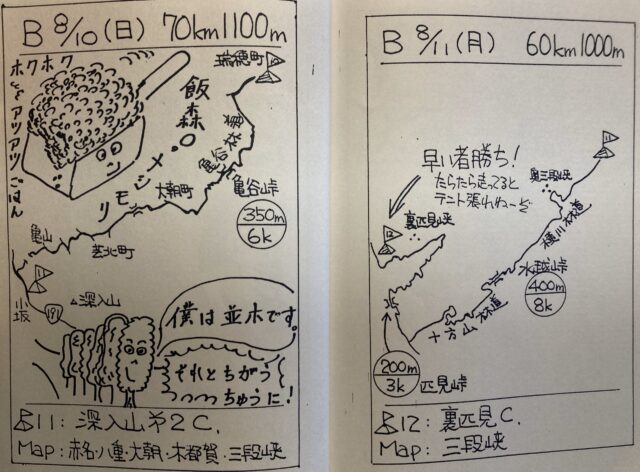 B 8/10(日) 70km1100m
ホクホク
アツアツごはん
瑞穂町
飯森。
亀谷林道
メシモリ
大朝町
亀谷峠
350m
6k
亀山
芸北町
小坂
191
△深入山
僕は並木です。
それとちがう
っつっちゅうに!
11: 深入山オ2C.
Map: 赤名・八重・大朝・木都賀・三段峡
B 8/11(月) 60km1000m
早い者勝ち!
たらたら走ってると
テント張れねーぞ
奥三段峡
裏匹見峡
横川林道
水越峠
400m
8k
十方山林道
200m
3k
匹見峠
12: 裏匹見C.
Map: 三段峡